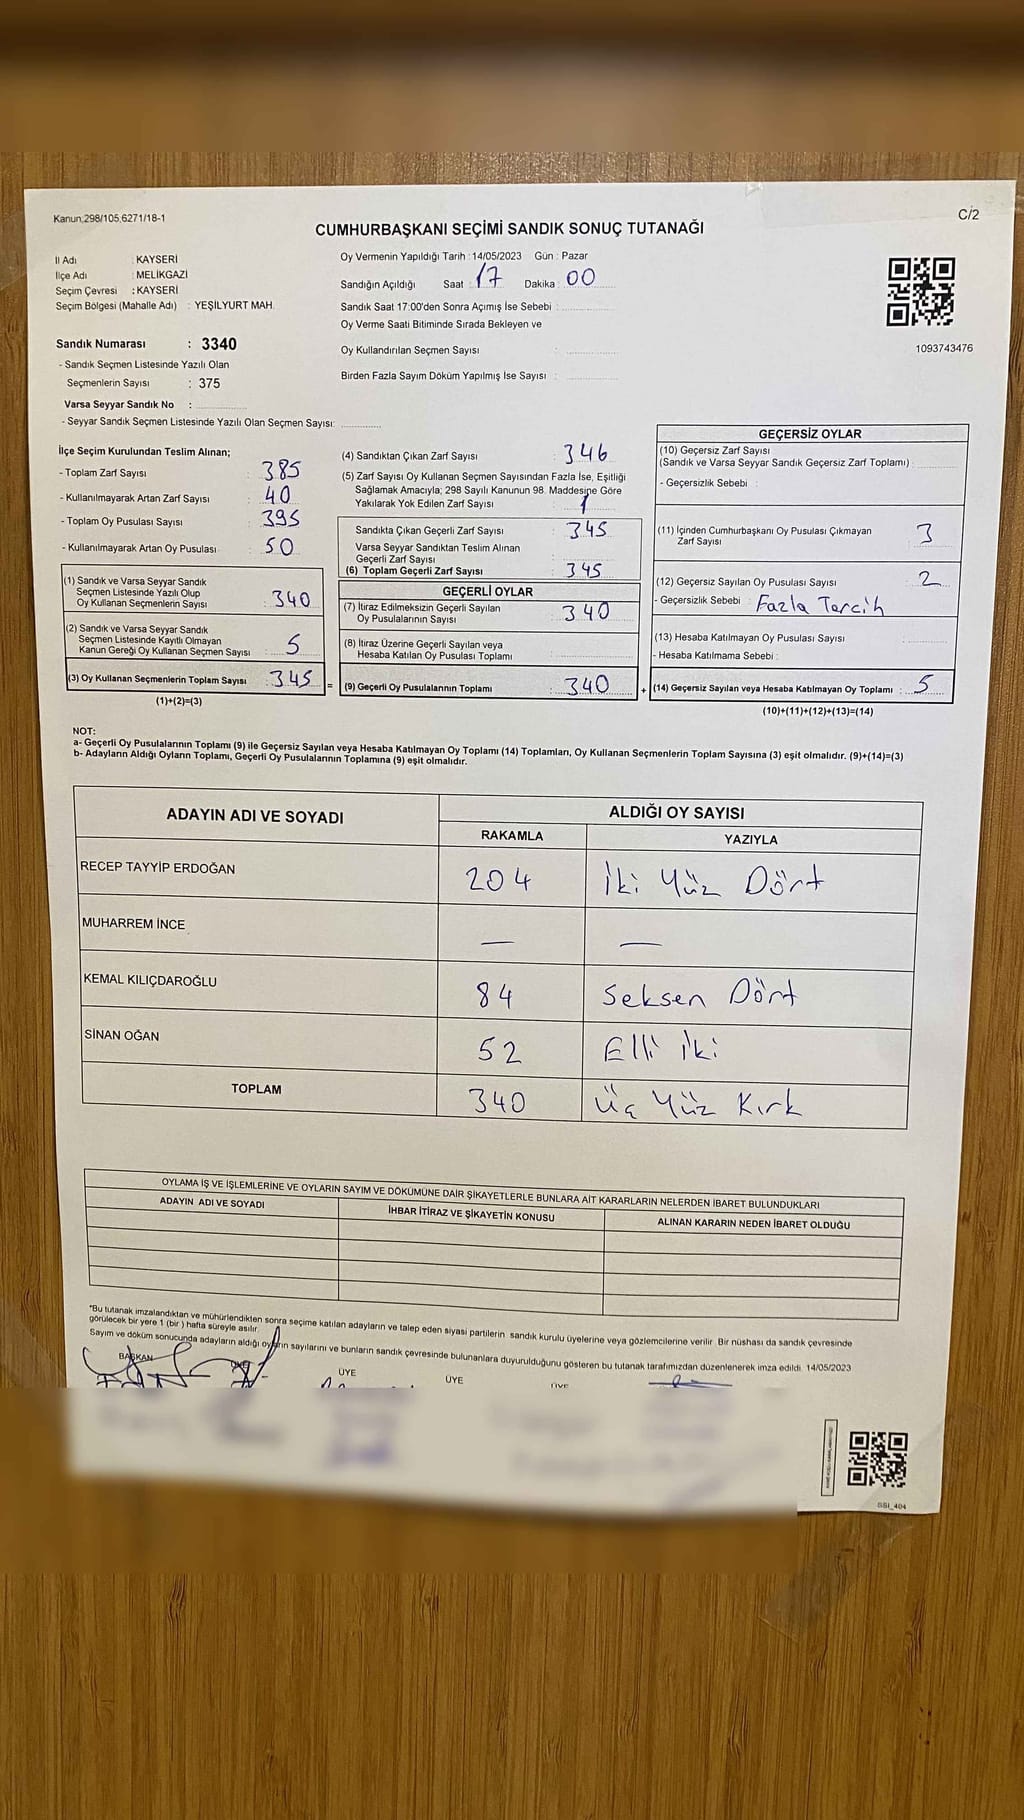 Kanun:298/105,6271/18-1
C/2
CUMHURBAŞKANI SEÇİMİ SANDIK SONUÇ TUTANAĞI
İl Adı : KAYSERİ
İlçe Adı : MELİKGAZİ
Seçim Çevresi : KAYSERİ
Seçim Bölgesi (Mahalle Adı) : YEŞİLYURT MAH.
Sandık Numarası : 3340
- Sandık Seçmen Listesinde Yazılı Olan
Seçmenlerin Sayısı : 375
Varsa Seyyar Sandık No :
- Seyyar Sandık Seçmen Listesinde Yazılı Olan Seçmen Sayısı:
Oy Vermenin Yapıldığı Tarih : 14/05/2023 Gün : Pazar
Sandığın Açıldığı Saat : 17 Dakika : 00
Sandık Saat 17:00'den Sonra Açımış İse Sebebi :
Oy Verme Saati Bitiminde Sırada Bekleyen ve
Oy Kullandırılan Seçmen Sayısı :
Birden Fazla Sayım Döküm Yapılmış İse Sayısı :
1093743476
İlçe Seçim Kurulundan Teslim Alınan;
- Toplam Zarf Sayısı : 385
- Kullanılmayarak Artan Zarf Sayısı : 40
- Toplam Oy Pusulası Sayısı : 395
- Kullanılmayarak Artan Oy Pusulası : 50
(1) Sandık ve Varsa Seyyar Sandık
Seçmen Listesinde Yazılı Olup
Oy Kullanan Seçmenlerin Sayısı : 340
(2) Sandık ve Varsa Seyyar Sandık
Seçmen Listesinde Kayıtlı Olmayan
Kanun Gereği Oy Kullanan Seçmen Sayısı : 5
(3) Oy Kullanan Seçmenlerin Toplam Sayısı : 345 =
(1)+(2)=(3)
(4) Sandıktan Çıkan Zarf Sayısı : 346
(5) Zarf Sayısı Oy Kullanan Seçmen Sayısından Fazla İse, Eşitliği
Sağlamak Amacıyla; 298 Sayılı Kanunun 98. Maddesine Göre
Yakılarak Yok Edilen Zarf Sayısı : 1
Sandıkta Çıkan Geçerli Zarf Sayısı : 345
Varsa Seyyar Sandıktan Teslim Alınan
Geçerli Zarf Sayısı
(6) Toplam Geçerli Zarf Sayısı : 345
GEÇERLİ OYLAR
(7) İtiraz Edilmeksizin Geçerli Sayılan
Oy Pusulalarının Sayısı : 340
(8) İtiraz Üzerine Geçerli Sayılan veya
Hesaba Katılan Oy Pusulası Toplamı :
(9) Geçerli Oy Pusulalarının Toplamı : 340 +
GEÇERSİZ OYLAR
(10) Geçersiz Zarf Sayısı
(Sandık ve Varsa Seyyar Sandık Geçersiz Zarf Toplamı) :
- Geçersizlik Sebebi :
(11) İçinden Cumhurbaşkanı Oy Pusulası Çıkmayan
Zarf Sayısı : 3
(12) Geçersiz Sayılan Oy Pusulası Sayısı : 2
- Geçersizlik Sebebi : Fazla Tercih
(13) Hesaba Katılmayan Oy Pusulası Sayısı
- Hesaba Katılmama Sebebi :
(14) Geçersiz Sayılan veya Hesaba Katılmayan Oy Toplamı : 5
(10)+(11)+(12)+(13)=(14)
NOT:
a- Geçerli Oy Pusulalarının Toplamı (9) ile Geçersiz Sayılan veya Hesaba Katılmayan Oy Toplamı (14) Toplamları, Oy Kullanan Seçmenlerin Toplam Sayısına (3) eşit olmalıdır. (9)+(14)=(3)
b- Adayların Aldığı Oyların Toplamı, Geçerli Oy Pusulalarının Toplamına (9) eşit olmalıdır.
ADAYIN ADI VE SOYADI
ALDIĞI OY SAYISI
RAKAMLA YAZIYLA
RECEP TAYYİP ERDOĞAN 204 İki Yüz Dört
MUHARREM İNCE — —
KEMAL KILIÇDAROĞLU 84 Seksen Dört
SİNAN OĞAN 52 Elli İki
TOPLAM 340 Üç Yüz Kırk
OYLAMA İŞ VE İŞLEMLERİNE VE OYLARIN SAYIM VE DÖKÜMÜNE DAİR ŞİKAYETLERLE BUNLARA AİT KARARLARIN NELERDEN İBARET BULUNDUKLARI
ADAYIN ADI VE SOYADI İHBAR İTİRAZ VE ŞİKAYETİN KONUSU ALINAN KARARIN NEDEN İBARET OLDUĞU
*Bu tutanak imzalandıktan ve mühürlendikten sonra seçime katılan adayların ve talep eden siyasi partilerin sandık kurulu üyelerine veya gözlemcilerine verilir. Bir nüshası da sandık çevresinde
görülecek bir yere 1 (bir ) hafta süreyle asılır.
Sayım ve döküm sonucunda adayların aldığı oyların sayılarını ve bunların sandık çevresinde bulunanlara duyurulduğunu gösteren bu tutanak tarafımızdan düzenlenerek imza edildi. 14/05/2023
BAŞKAN ÜYE ÜYE ÜYE
SSI_404